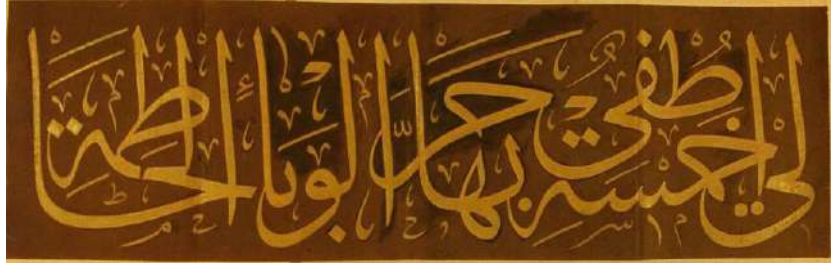 لي خمسة أطفي بها حر الوباء الحاطمة